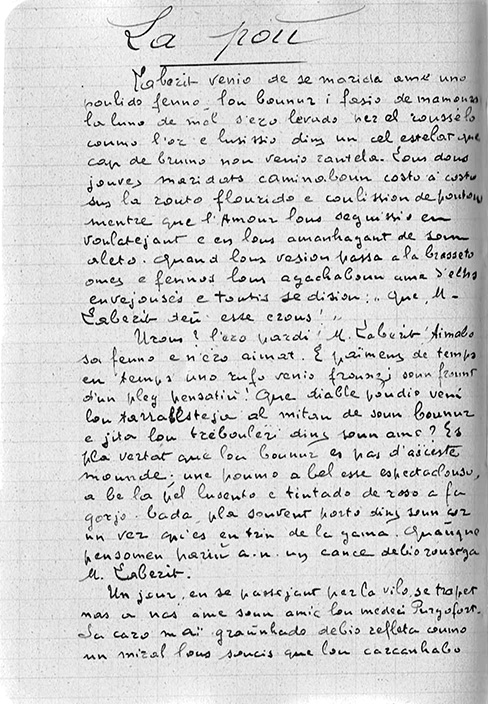 La poù
Laberit venio de se marida ame uno
poulido fenno, lou bounur i fasio de mamours
la luno de mèl s'ero levado per el roussélo
coumo l'or e lusissio dins un cel estelat que
cap de brumo non venio rantela. Lous dous
jouves maridats caminaboun costo à costo
sus la routo flourido e coulission de poutous
mentre que l'Amour lous seguissio en
voulatejant e en lous amanhagant de soun
aleto. Quand lous vesion passa a la brasseto
omes e fennos lous agachaboun ame d'elhs
envejousés e toutis se dision: "Que, M.
Laberit deù esse erous!"
Urous? l'ero pardi! M. Laberit Aimabo
sa fenno e n'èro aimat. E paimens de temps
en temps uno rufo venio frounzi soun frount
d'un pleg pensatiù! Que diable poudio vení
lou tarrabasteja al mitan de soun bounur
e jita lou trebouleri dins soun ame? Es
pla vertat que lou bounur es pas d'aceste
mounde; une poumo a bel esse espectaclouso,
a be la pèl lusento e tintado de roso a fa
gorjo-bada, pla souvent porto dins soun cor
un ver qu'es en trin de la gama. Quauque
pensomen pariù a-n-un cance debio rousega
M. Laberit.
Un jour, en se passejant per la vilo, se trapet
nas a nas ame soun amic lou medeci Purgofort.
Sa caro maï graùnhado debio refleta coumo
un miral lous soucis que lou carcanhabo